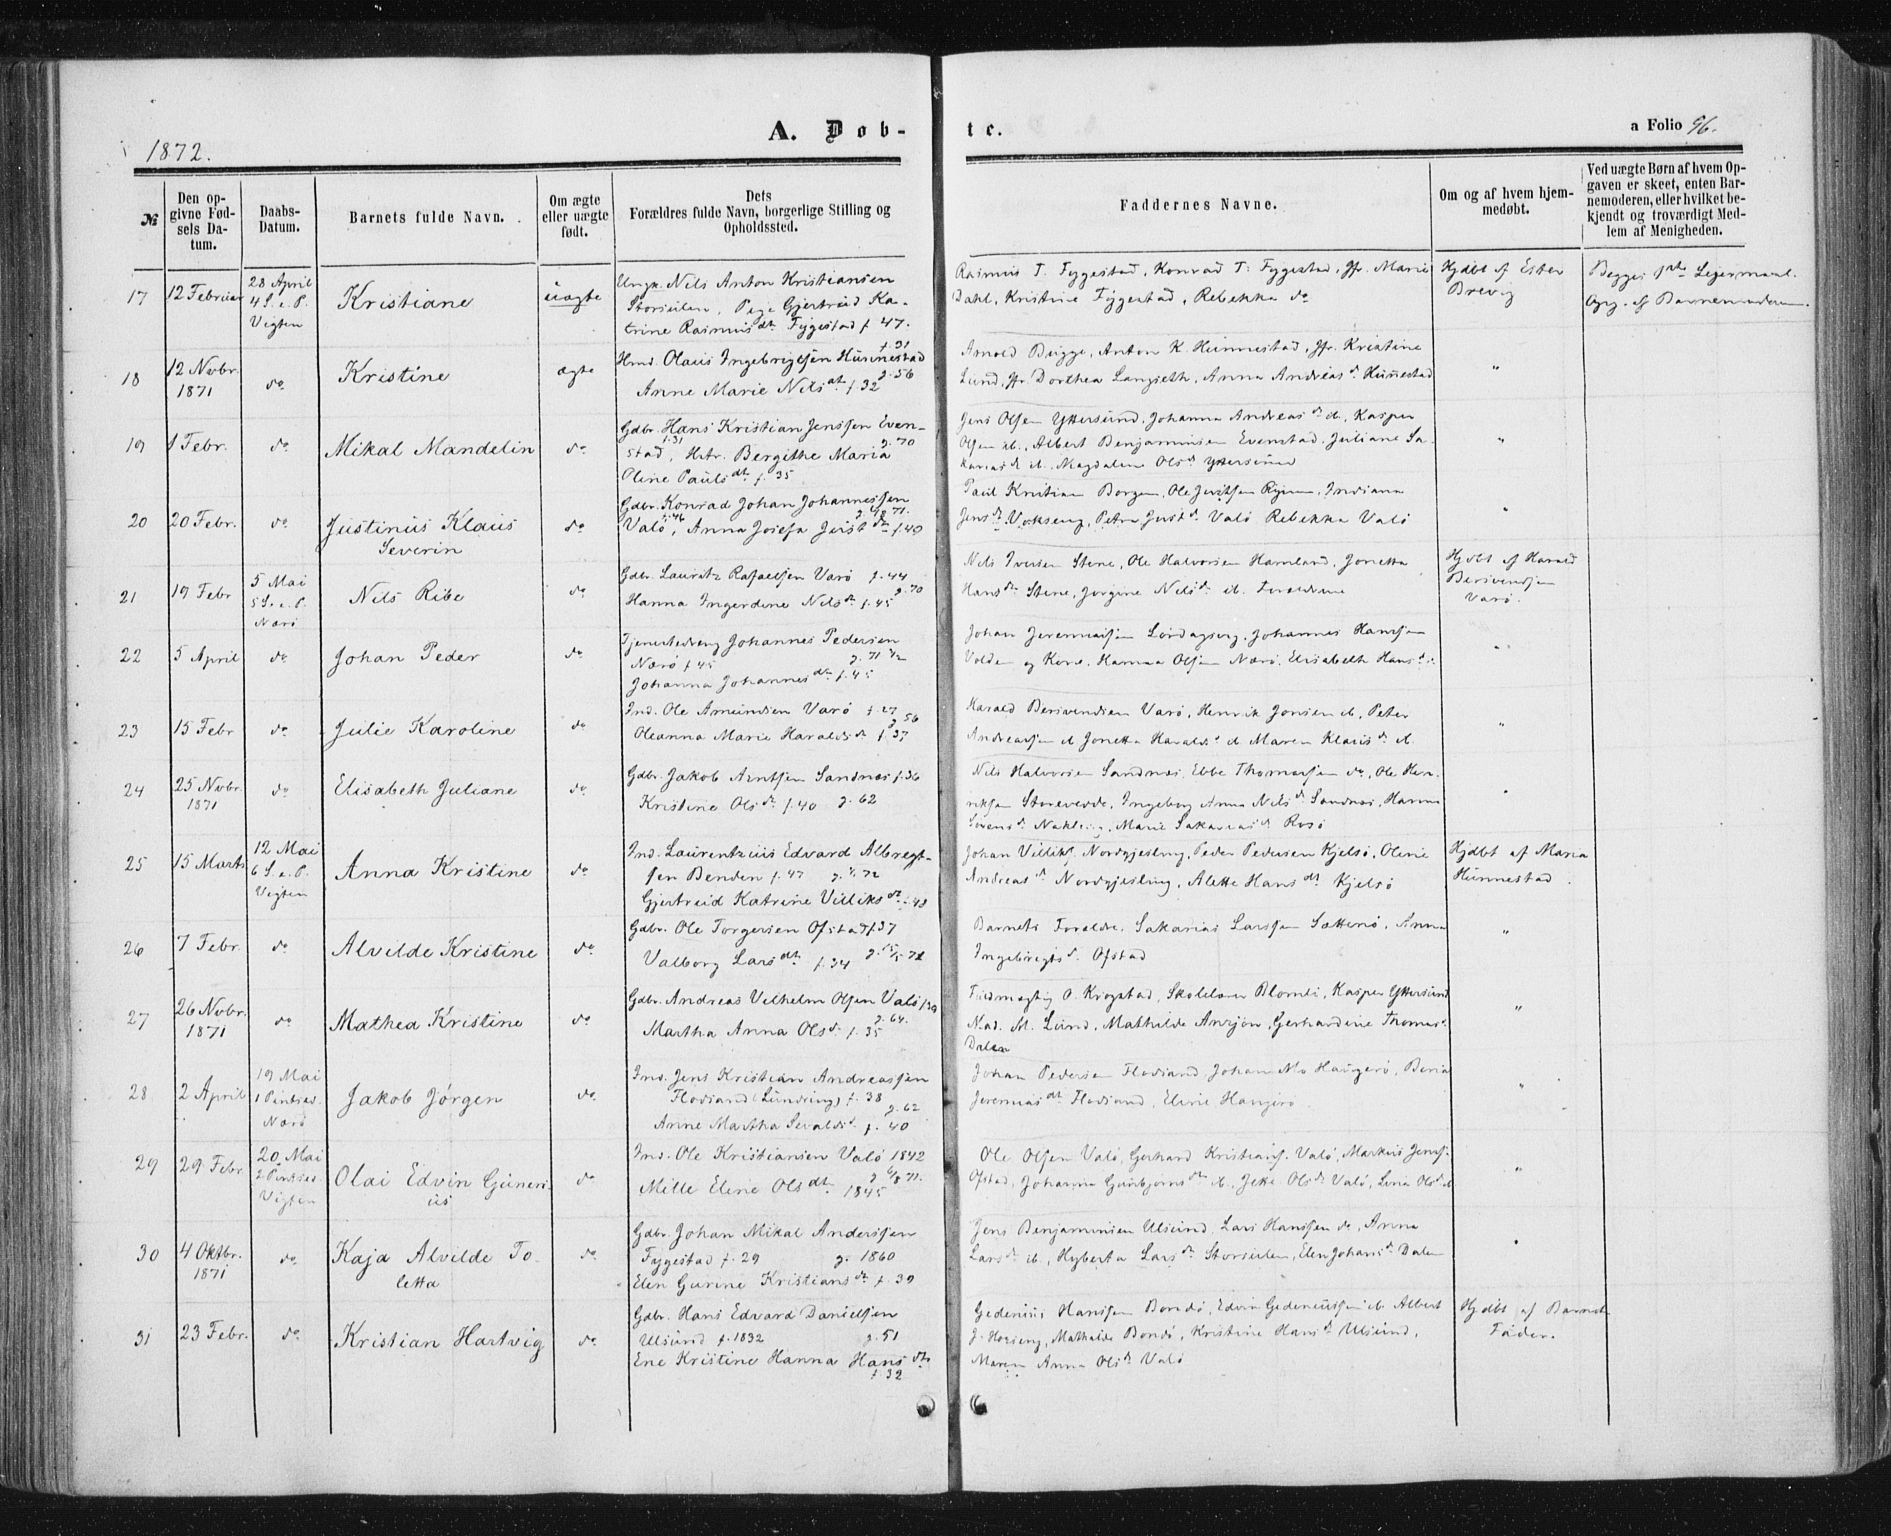 1872.
A. Døb-
te.
a Folio 96.
№
Den opgivne Fødsels Datum.
Daabs-Datum.
Barnets fulde Navn.
Om ægte eller uægte født.
Dets Forældres fulde Navn, borgerlige Stilling og Opholdssted.
Faddernes Navne.
Om og af hvem hjemmedøbt.
Ved uægte Børn af hvem Opgaven er skeet, enten Barnemoderen, eller hvilket bekjendt og troværdigt Medlem af Menigheden.
17
12 Februar
28 April
4 S. e. P.
Vigten
Kristiane
uægte
Ungk. Nils Anton Kristiansen
Storsulen, Pige Gjertrud Ka-
trine Rasmus dt. Fyggestad f. 47.
Rasmus T. Fyggestad, Konrad T. Fyggestad, Jfr. Marie
Dahl, Kristine Fyggestad, Rebekka do
Hjdbt af Ester
Brevig
Begges 1ste Leiermaal.
Opg. af Barnemoderen.
18
12 Novbr.
1871
do
Kristine
ægte
Hmd. Olaus Ingebrigtsen Hunnestad f. 31
Anne Marie Nils dt. f. 32 g. 56
Arnold Bugge, Anton K. Hunnestad, Jfr. Kristine
Lund, Jfr. Dorthea Langseth, Anna Andreas d. Hunnestad
"
19
1 Febr.
do
Mikal Mandelin
do
Gdbr. Hans Kristian Jenssen Even-
stad, f. 31 Hstr. Bergithe Maria g. 70
Oline Pauls dt. f. 35
Jens Olsen Yttersund, Johanna Andreas d. ib., Kasper
Olsen ib., Albert Benjaminsen Evenstad, Juliane Sa-
karias d. ib., Magdalene Ols d. Yttersund
"
20
20 Febr.
do
Justinus Klaus
Severin
do
Gdbr. Konrad Johan Johannessen
Valø, f. 46 Anna Josefa Just dt. f. 49
Paul Kristian Borgen, Ole Justsen Ryum, Indiana
Jens d. Vokseng, Petra Just d. Valø Rebekka Valø
"
21
19 Febr
5 Mai
5 S. e. P.
Nærø
Nils Ribe
do
Gdbr. Lauritz Rafaelsen Varø f. 44
Hanna Ingerdine Nils dt. f. 45 g. 70
Nils Iversen Stene, Ole Halvorsen Hamland, Jonetta
Hans d. Stene, Jørgine Nils d. ib. Forældrene
Hjdbt af Harald
Berivendsen
Varø.
22
5 April
do
Johan Peder
do
Tjenestedreng Johannes Pedersen
Nærø f. 45
Johanna Johannes dt. f. 45
Johan Jeremiassen Lørdagseng, Johannes Hanssen
Volden og Kone, Hanna Olsen Nærø, Elisabeth Hans d.
"
23
15 Febr
do
Julie Karoline
do
Ind. Ole Amundsen Varø f. 27
Oleanna Marie Haralds dt. f. 37 g. 56
Harald Berivendsen Varø, Henrik Jonsen ib., Peter
Andreassen ib. Jonetta Haralds d. ib. Maren Klaus d. ib.
"
24
25 Novbr.
1871
do
Elisabeth Juliane
do
Gdbr. Jakob Arntsen Sandnæs f. 36
Kristine Ols dt. f. 40 g. 62
Nils Halvorsen Sandnæs, Ebbe Thomassen do, Ole Hen-
riksen Storevedde, Ingeborg Anna Nils d. Sandnæs, Hanna
Sørens d. Nakling, Marie Sakarias d. Rosø
"
25
15 Marts
12 Mai
6 S. e. P.
Vigten
Anna Kristine
do
Ind. Laurentzius Edvard Albregt-
sen Benden f. 47
Gjertrud Katrine Villiks dt. f. 48
Johan Villiks. Nordgjæsling, Peder Pedersen Kjelsø, Oline
Andreas d. Nordgjæsling, Alette Hans dt. Kjelsø
Hjdbt af Maria
Hunnestad.
26
7 Febr.
do
Alvilde Kristine
do
Gdbr. Ole Torgersen Ofstad f. 37
Valborg Lars dt. f. 34
Barnets Forældre, Sakarias Larssen Sætterø, Anna
Ingebrigts d. Ofstad
"
27
26 Novbr.
1871
do
Mathea Kristine
do
Gdbr. Andreas Vilhelm Olsen Valø
Martha Anna Ols d. f. 35 g. 64.
Fuldmægtig O. Krogstad, Skolelærer Blomli, Kasper Yttersund
Mad. M. Lund, Mathilde Anzjøn, Gerhardine Thomas d.
Dalen
"
28
2 April
19 Mai
1 Pintsed.
Nærø
Jakob Jørgen
do
Ind. Jens Kristian Andreassen
Flosand (Lundring) f. 38
Anne Martha Sevalds d. f. 40 g. 62
Johan Pedersen Flosand, Johan Haugerø, Beria
Jeremias dt. Flosand, Eline Haugerø
"
29
29 Febr.
20 Mai
2 Pintsed.
Vigten
Olai Edvin Guneri-
us
do
Ind. Ole Kristiansen Valø 1842
Mille Eline Ols dt. 1845
Ole Olsen Valø, Gerhard Kristians. Valø, Markus Jenss.
Ofstad, Johanna Gunbjørns dt. ib., Jette Ols d. Valø, Lina Ols d. ib
"
30
4 Oktbr.
1871
do
Kaja Alvilde To-
letta
do
Gdbr. Johan Mikal Anderssen
Fyggestad f. 29 g. 1860
Elen Gurine Kristians dt. f. 39
Jens Benjaminsen Ulsund Lars Hanssen do, Anna
Lars d. ib., Hyberta Lars d. Storsulen, Elen Johans d. Dalen
"
31
23 Febr.
do
Kristian Hartvig
do
Gdbr. Hans Edvard Danielsen
Ulsund f. 1832 g. 51
Ene Kristine Hanna Hans dt.
f. 32
Gedenius Hanssen Bondø, Edvin Gedeniussen ib. Albert
J. Horseng, Mathilde Bondø, Kristine Hans d. Ulsund,
Maren Anna Ols d. Valø
Hjdbt af Barnets
Fader.